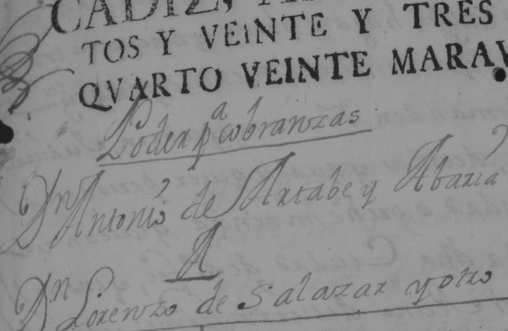 CADIZ,
TOS Y VEINTE Y TRES
QVARTO VEINTE MARAV
Poder pa cobranzas
Dn Antonio de Artabe y Abaria
A
Dn Lorenzo de Salazar y otro